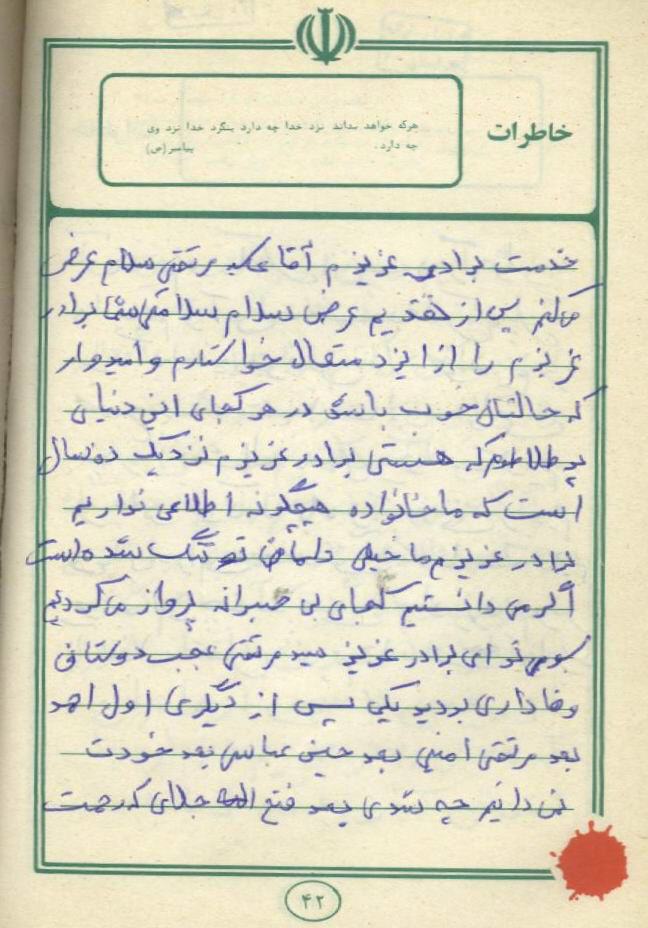 خاطرات
هرکه خواهد بداند نزد خدا چه دارد بنگرد خدا نزد وی
چه دارد. پیامبر(ص)
خدمت برادر عزیزم آقا سید مرتضی سلام عرض
می‌کنم پس از تقدیم عرض سلام سلامتی شما برادر
عزیزم را از ایزد متعال خواستارم و امیدوار
که حالتان خوب باشد در هر کجای این دنیای
پر طلاطم که هستی برادر عزیزم نزدیک ده سال
است که ما خانواده هیچگونه اطلاعی نداریم
برادر عزیزم ما خیلی دلمان تنگ شده است
اگر می دانستیم کجای بی صبرانه پرواز می کردیم
بسوی تو ای برادر عزیز سید مرتضی عجب دوستان
وفاداری بودید یکی پس از دیگری اول احد
بعد مرتضی امینی بعد حسن عباسی بعد خودت
نمی دانیم چه شدی بعد فتح الله جلالی که رحمت
۴۲